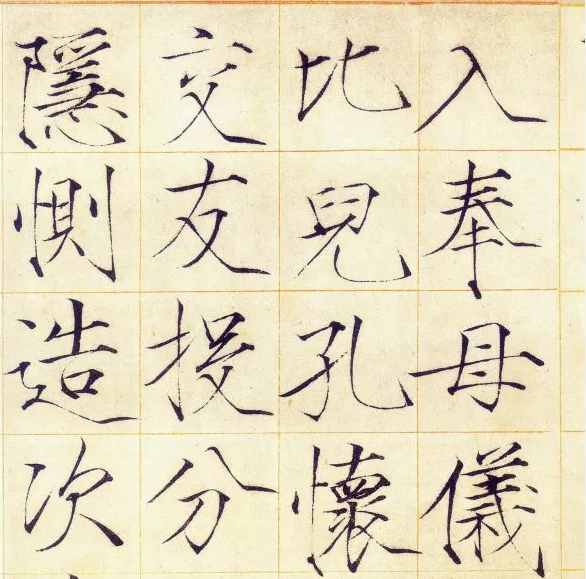 入奉母儀
比兒孔懷
交友投分
隱惻造次